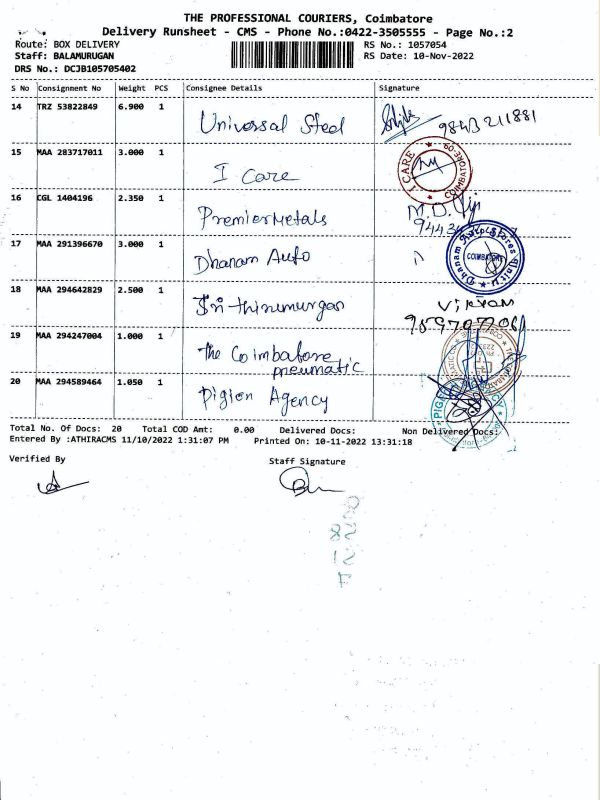 THE PROFESSIONAL COURIERS, Coimbatore
Delivery Runsheet - CMS - Phone No.:0422-3505555 - Page No.:2
Route: BOX DELIVERY RS No.: 1057054
Staff: BALAMURUGAN RS Date: 10-Nov-2022
DRS No.: DCJB105705402
S No Consignment No Weight PCS Consignee Details Signature
14 TRZ 53822849 6.900 1 Universal Steel 98413 211881
15 MAA 283717011 3.000 1 I Care I CARE COIMBATORE-09
16 CGL 1404196 2.350 1 Premier Metals M.D.
17 MAA 291396670 3.000 1 Dhanam Auto Dhanam COIMBATORE
18 MAA 294642829 2.500 1 Sri thirumurgan
19 MAA 294247004 1.000 1 The Coimbatore pneumatic
20 MAA 294589464 1.050 1 Pigion Agency
Total No. Of Docs: 20 Total COD Amt: 0.00 Delivered Docs: Non Delivered Docs:
Entered By :ATHIRACMS 11/10/2022 1:31:07 PM Printed On: 10-11-2022 13:31:18
Verified By Staff Signature